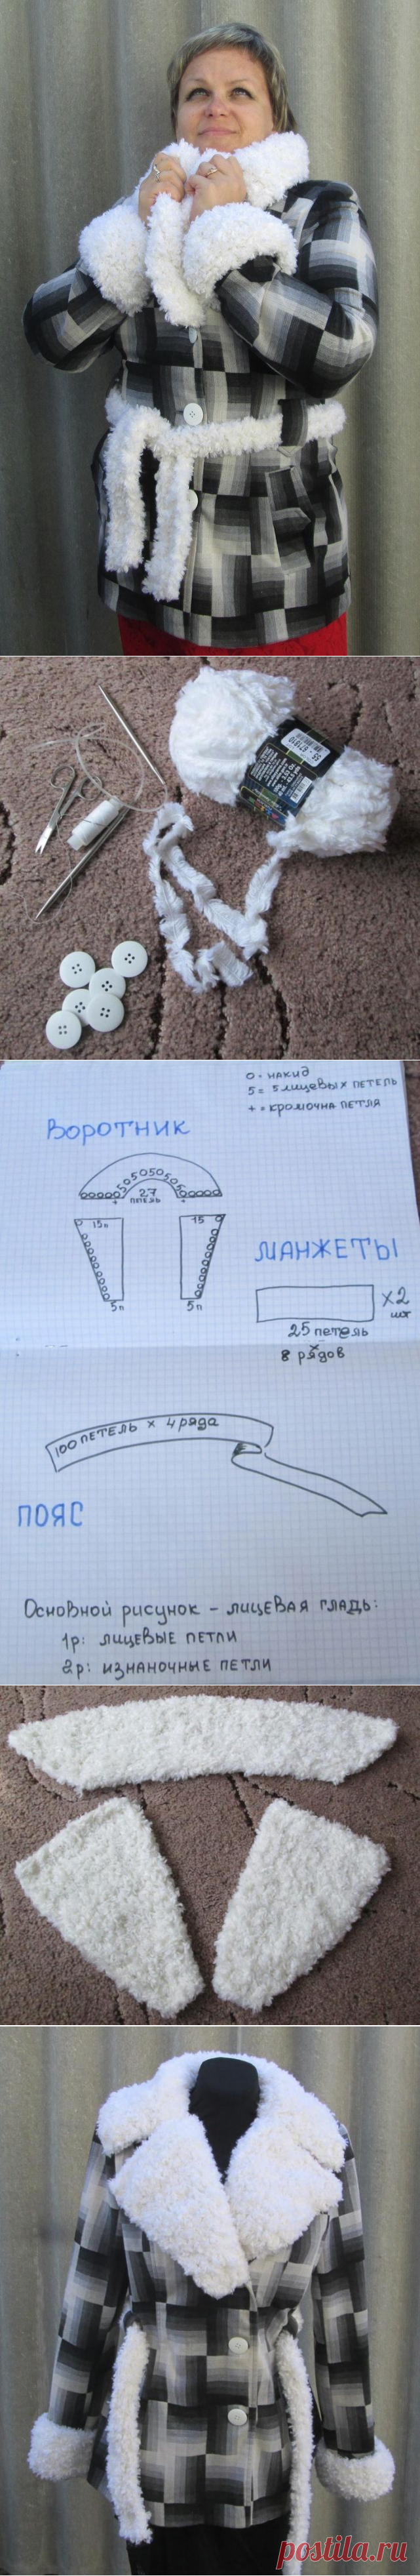 О - накид
5 = 5 лицевых петель
+ = кромочна петля
Воротник
5050505
27
петель
+ +
15п
15
5п
5п
Манжеты
x2
шт
25 петель
x
8 рядов
100 петель x 4 ряда
Пояс
Основной рисунок - лицевая гладь:
1р: лицевые петли
2р: изнаночные петли
postila.ru